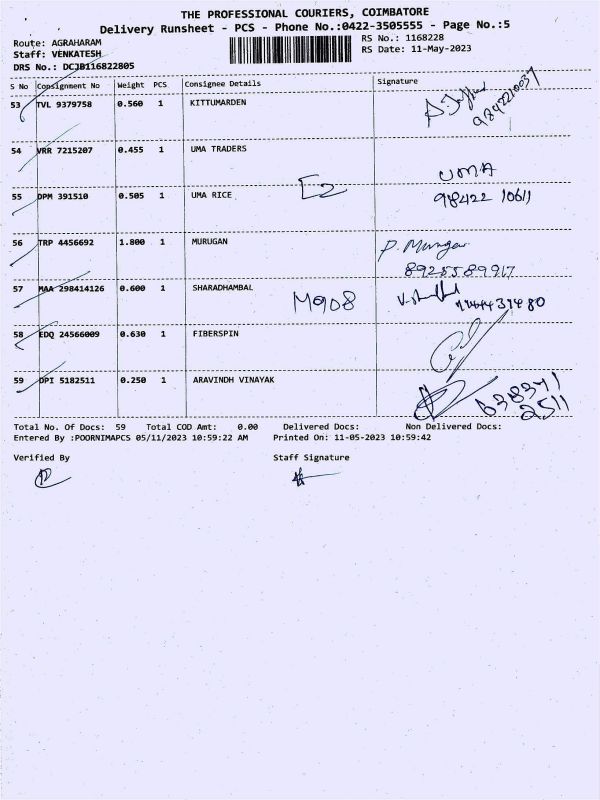 THE PROFESSIONAL COURIERS, COIMBATORE
Delivery Runsheet - PCS - Phone No.:0422-3505555 - Page No.:5
Route: AGRAHARAM
RS No.: 1168228
Staff: VENKATESH
RS Date: 11-May-2023
DRS No.: DCJB116822805
S No Consignment No Weight PCS Consignee Details Signature
53 TVL 9379758 0.560 1 KITTUMARDEN
9842210037
54 VRR 7215207 0.455 1 UMA TRADERS
UMA
55 DPM 391510 0.505 1 UMA RICE 98422 10611
56 TRP 4456692 1.800 1 MURUGAN P. Murugan
8925589917
57 MAA 298414126 0.600 1 SHARADHAMBAL
M908
58 EDQ 24566009 0.630 1 FIBERSPIN
59 DPI 5182511 0.250 1 ARAVINDH VINAYAK
638371
2511
Total No. Of Docs: 59 Total COD Amt: 0.00 Delivered Docs: Non Delivered Docs:
Entered By :POORNIMAPCS 05/11/2023 10:59:22 AM Printed On: 11-05-2023 10:59:42
Verified By Staff Signature